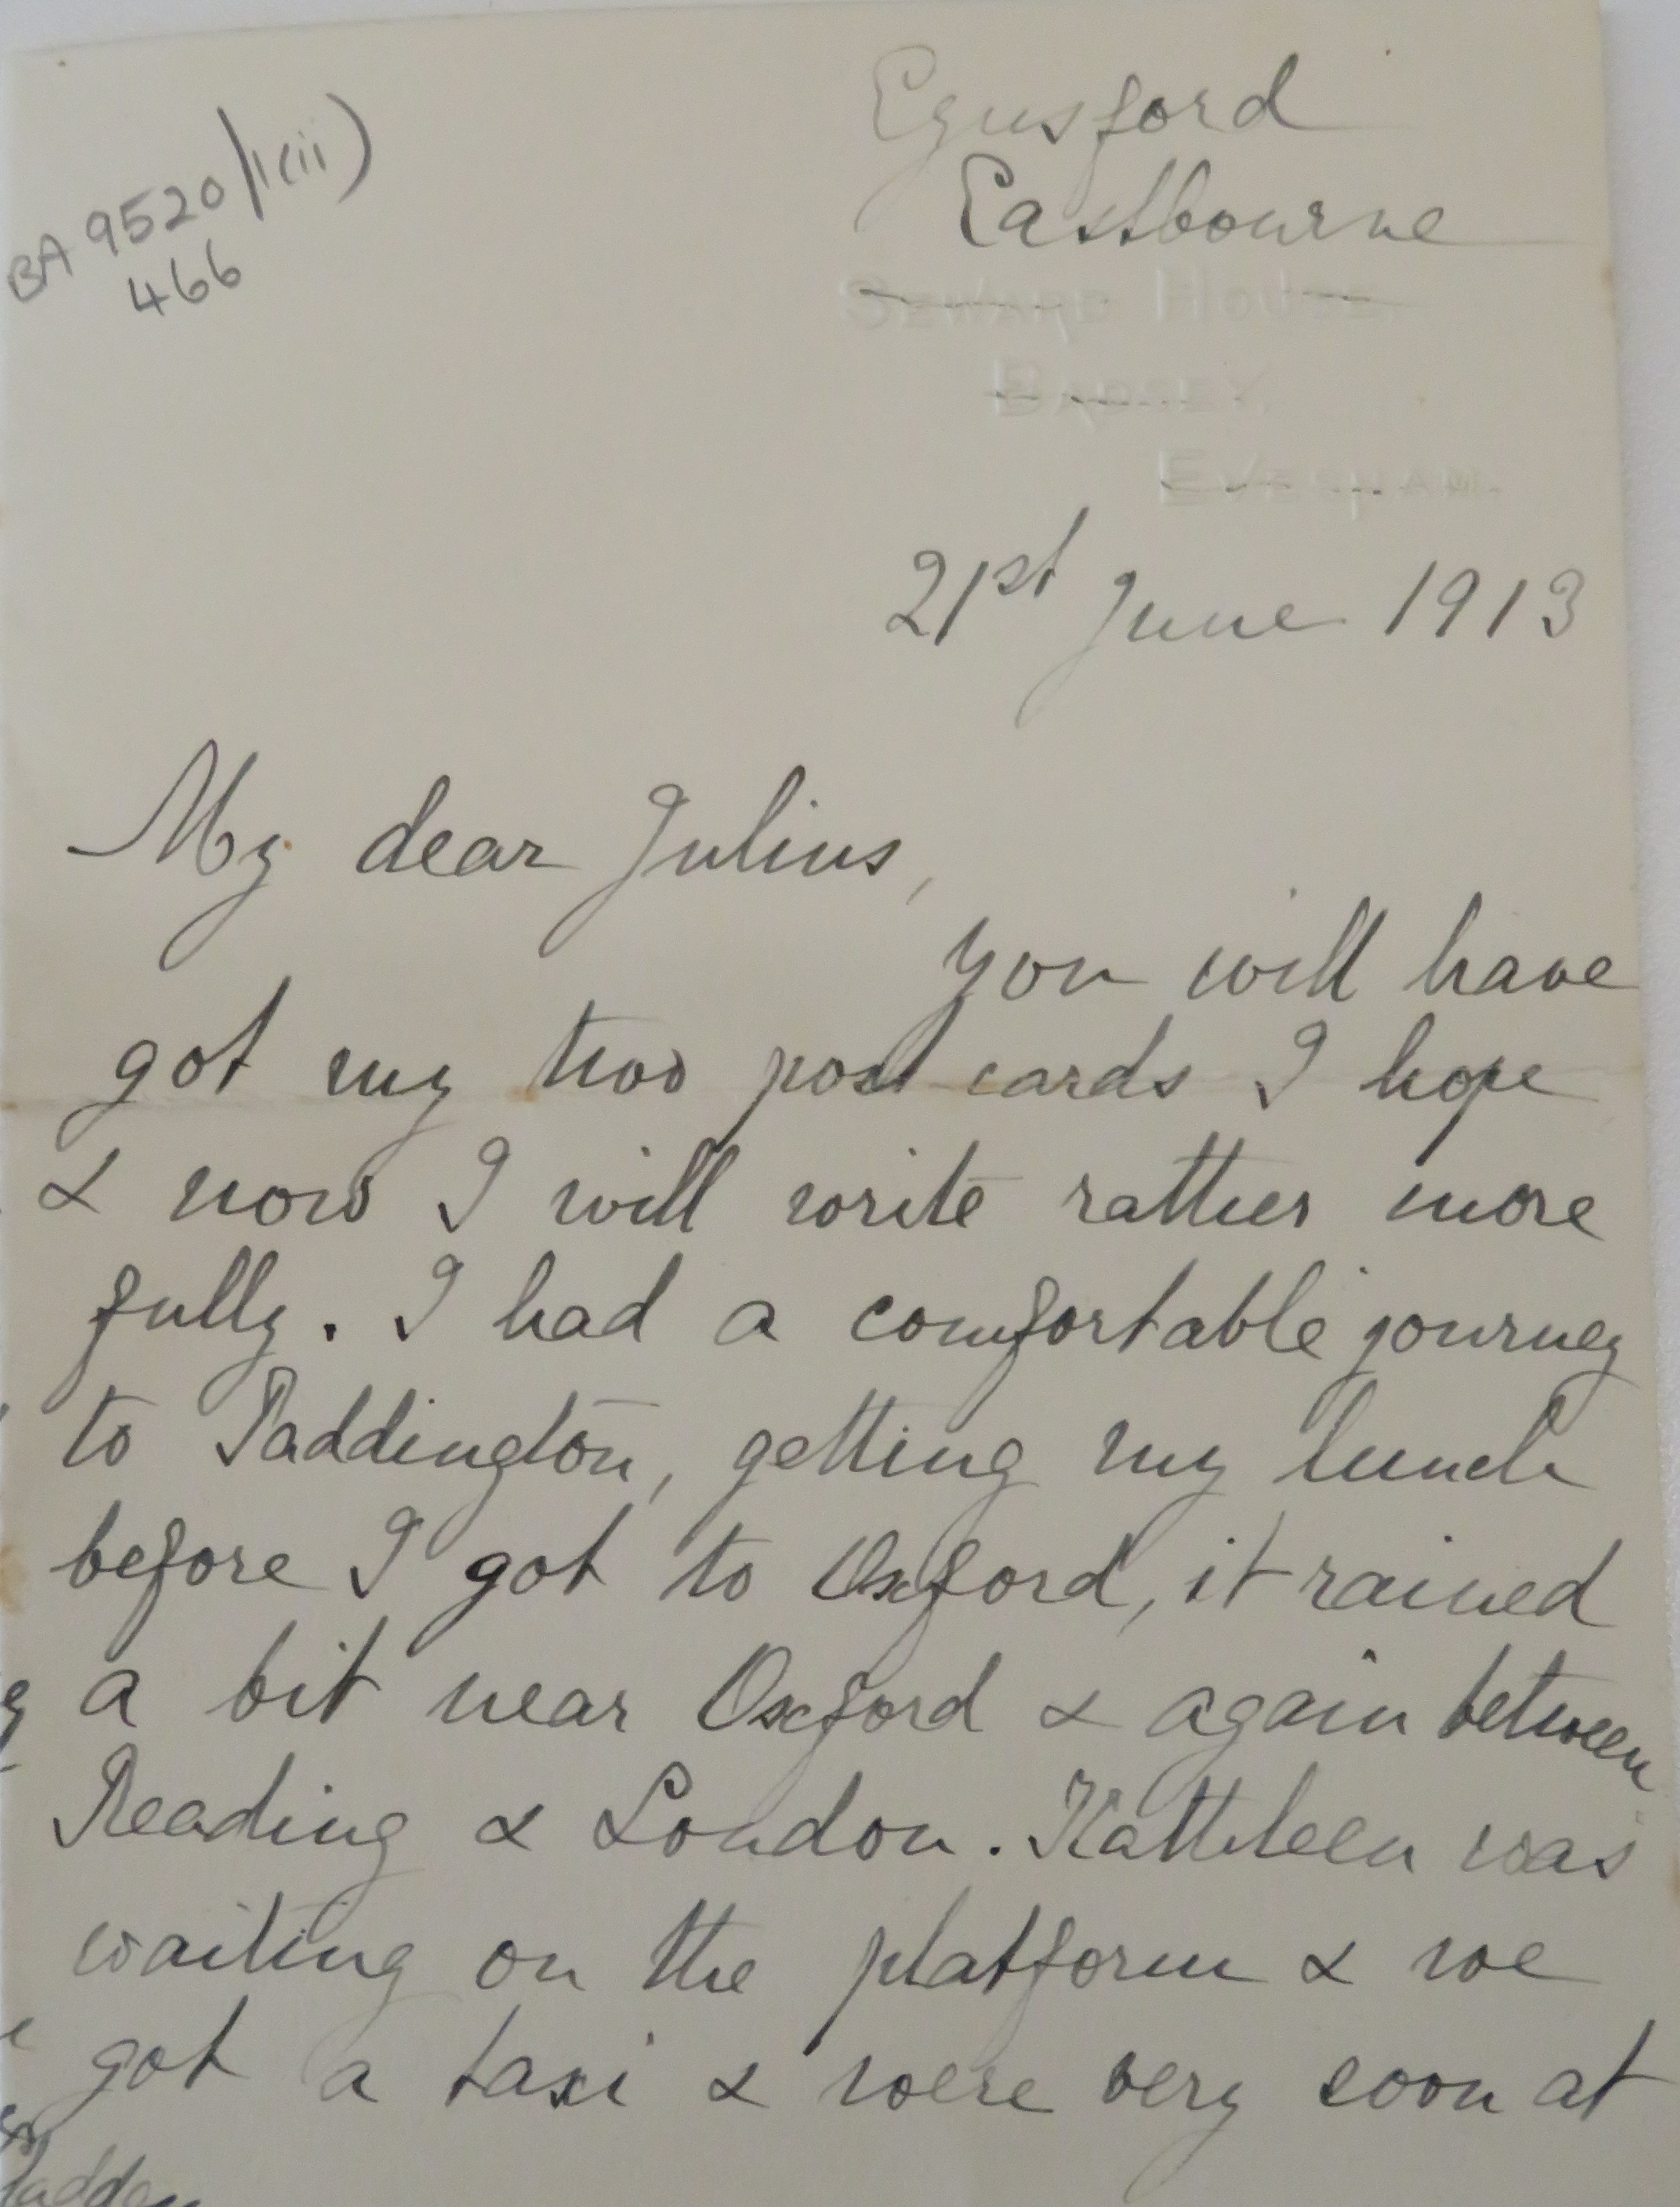 BA 9520/1(ii)
466
Egusford
Eastbourne
SEWARD HOUSE
BADSEY
EVESHAM
21st June 1913
My dear Julius,
you will have
got my two post cards I hope
& now I will write rather more
fully. I had a comfortable journey
to Paddington, getting my lunch
before I got to Oxford, it rained
a bit near Oxford & again between
Reading & London. Kathleen was
waiting on the platform & we
got a taxi & were very soon at